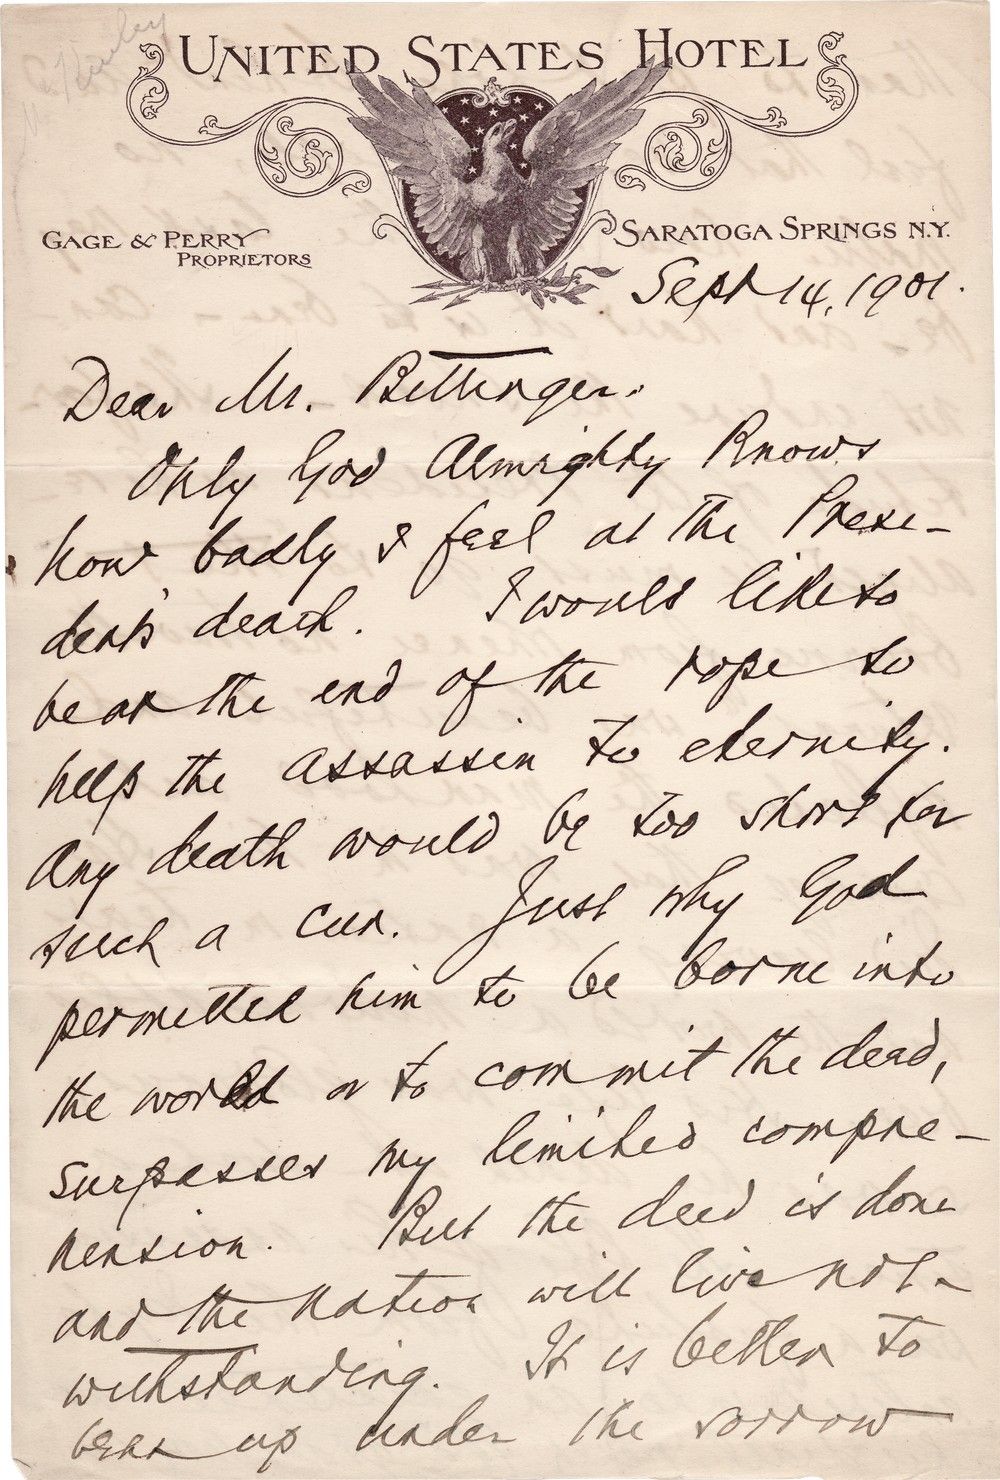 UNITED STATES HOTEL
GAGE & PERRY
PROPRIETORS
SARATOGA SPRINGS N.Y.
Sept 14, 1901.
Dear Mr. Bittinger:
Only God Almighty Knows
how badly I feel at the Presi-
dent's death. I would like to
bear the end of the rope to
help the assassin to eternity.
Any death would be too short for
such a cur. Just why God
permitted him to be borne into
the world or to commit the dead,
surpasses my limited compre-
hension. But the deed is done
and the nation will live not-
withstanding. It is better to
bear up under the sorrow